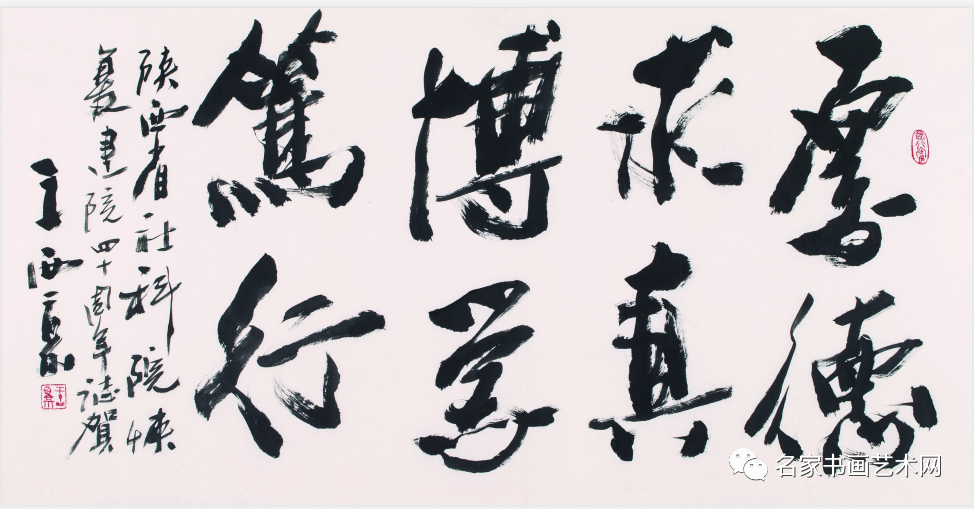 厚德
求真
博学
篤行
陕西省社科院恢
复建院四十周年誌賀
王西京
名家书画艺术网